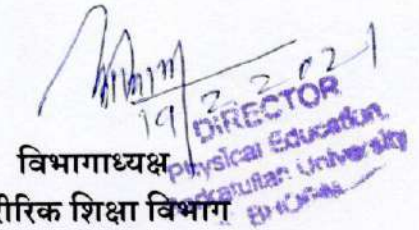 19/2/2021
DIRECTOR
Physical Education,
Barkatullah University
BHOPAL
विभागाध्यक्ष
रीरिक शिक्षा विभाग